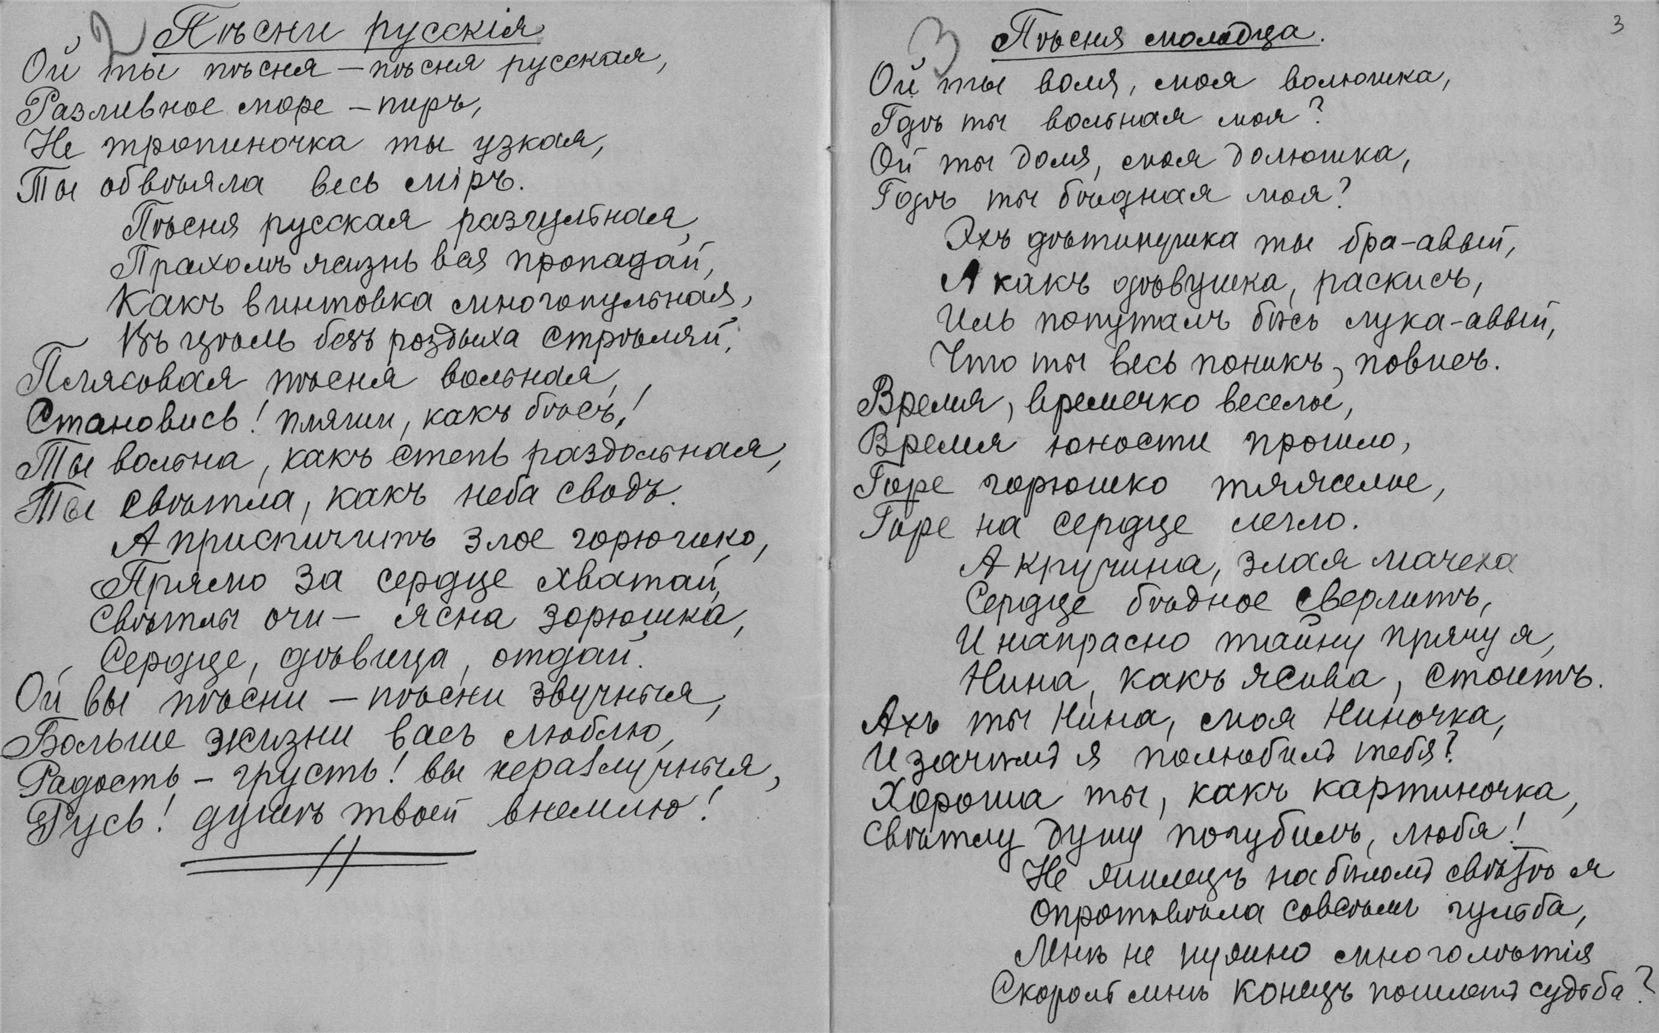 2 Пѣсни русскія
Ой ты пѣсня – пѣсня русская,
Разливное море – пиръ,
Не тропиночка ты узкая,
Ты обвѣяла весь міръ.
Пѣсня русская разгульная,
Прахомъ жизнь вся пропадай,
Какъ винтовка многопульная,
Въ цѣль безъ роздыха стрѣляй.
Плясовая пѣсня вольная,
Становись! пляши, какъ бѣсъ!
Ты вольна, какъ степь раздольная,
Ты свѣтла, какъ неба сводъ.
А приспичитъ злое горюшко,
Прямо за сердце хватай,
Свѣтлы очи – ясна зорюшка,
Сердце, дѣвица, отдай.
Ой вы пѣсни – пѣсни звучныя,
Больше жизни васъ люблю,
Радость – грусть! вы неразлучныя,
Русь! душѣ твоей внемлю!
3
3 Пѣсня молодца.
Ой ты воля, моя волюшка,
Гдѣ ты вольная моя?
Ой ты доля, моя долюшка,
Гдѣ ты бѣдная моя?
Эхъ дѣтинушка ты бра-авый,
А какъ дѣвушка, раскисъ,
Иль попуталъ бѣсъ лука-авый,
Что ты весь поникъ, повисъ.
Время, времечко веселое,
Время юности прошло,
Горе горюшко тяжелое,
Горе на сердце легло.
А кручина, злая мачеха
Сердце бѣдное сверлитъ,
И напрасно тайну прячу я,
Нина, какъ жива, стоитъ.
Ахъ ты Нина, моя Ниночка,
И зачѣмъ я полюбилъ тебя?
Хороша ты, какъ картиночка,
Свѣтлу душу погубилъ, любя!
Не жилецъ на бѣломъ свѣтѣ я
Опротивѣла совсѣмъ гульба,
Мнѣ не нужно многолѣтія
Скороль мнѣ конецъ пошлетъ судьба?